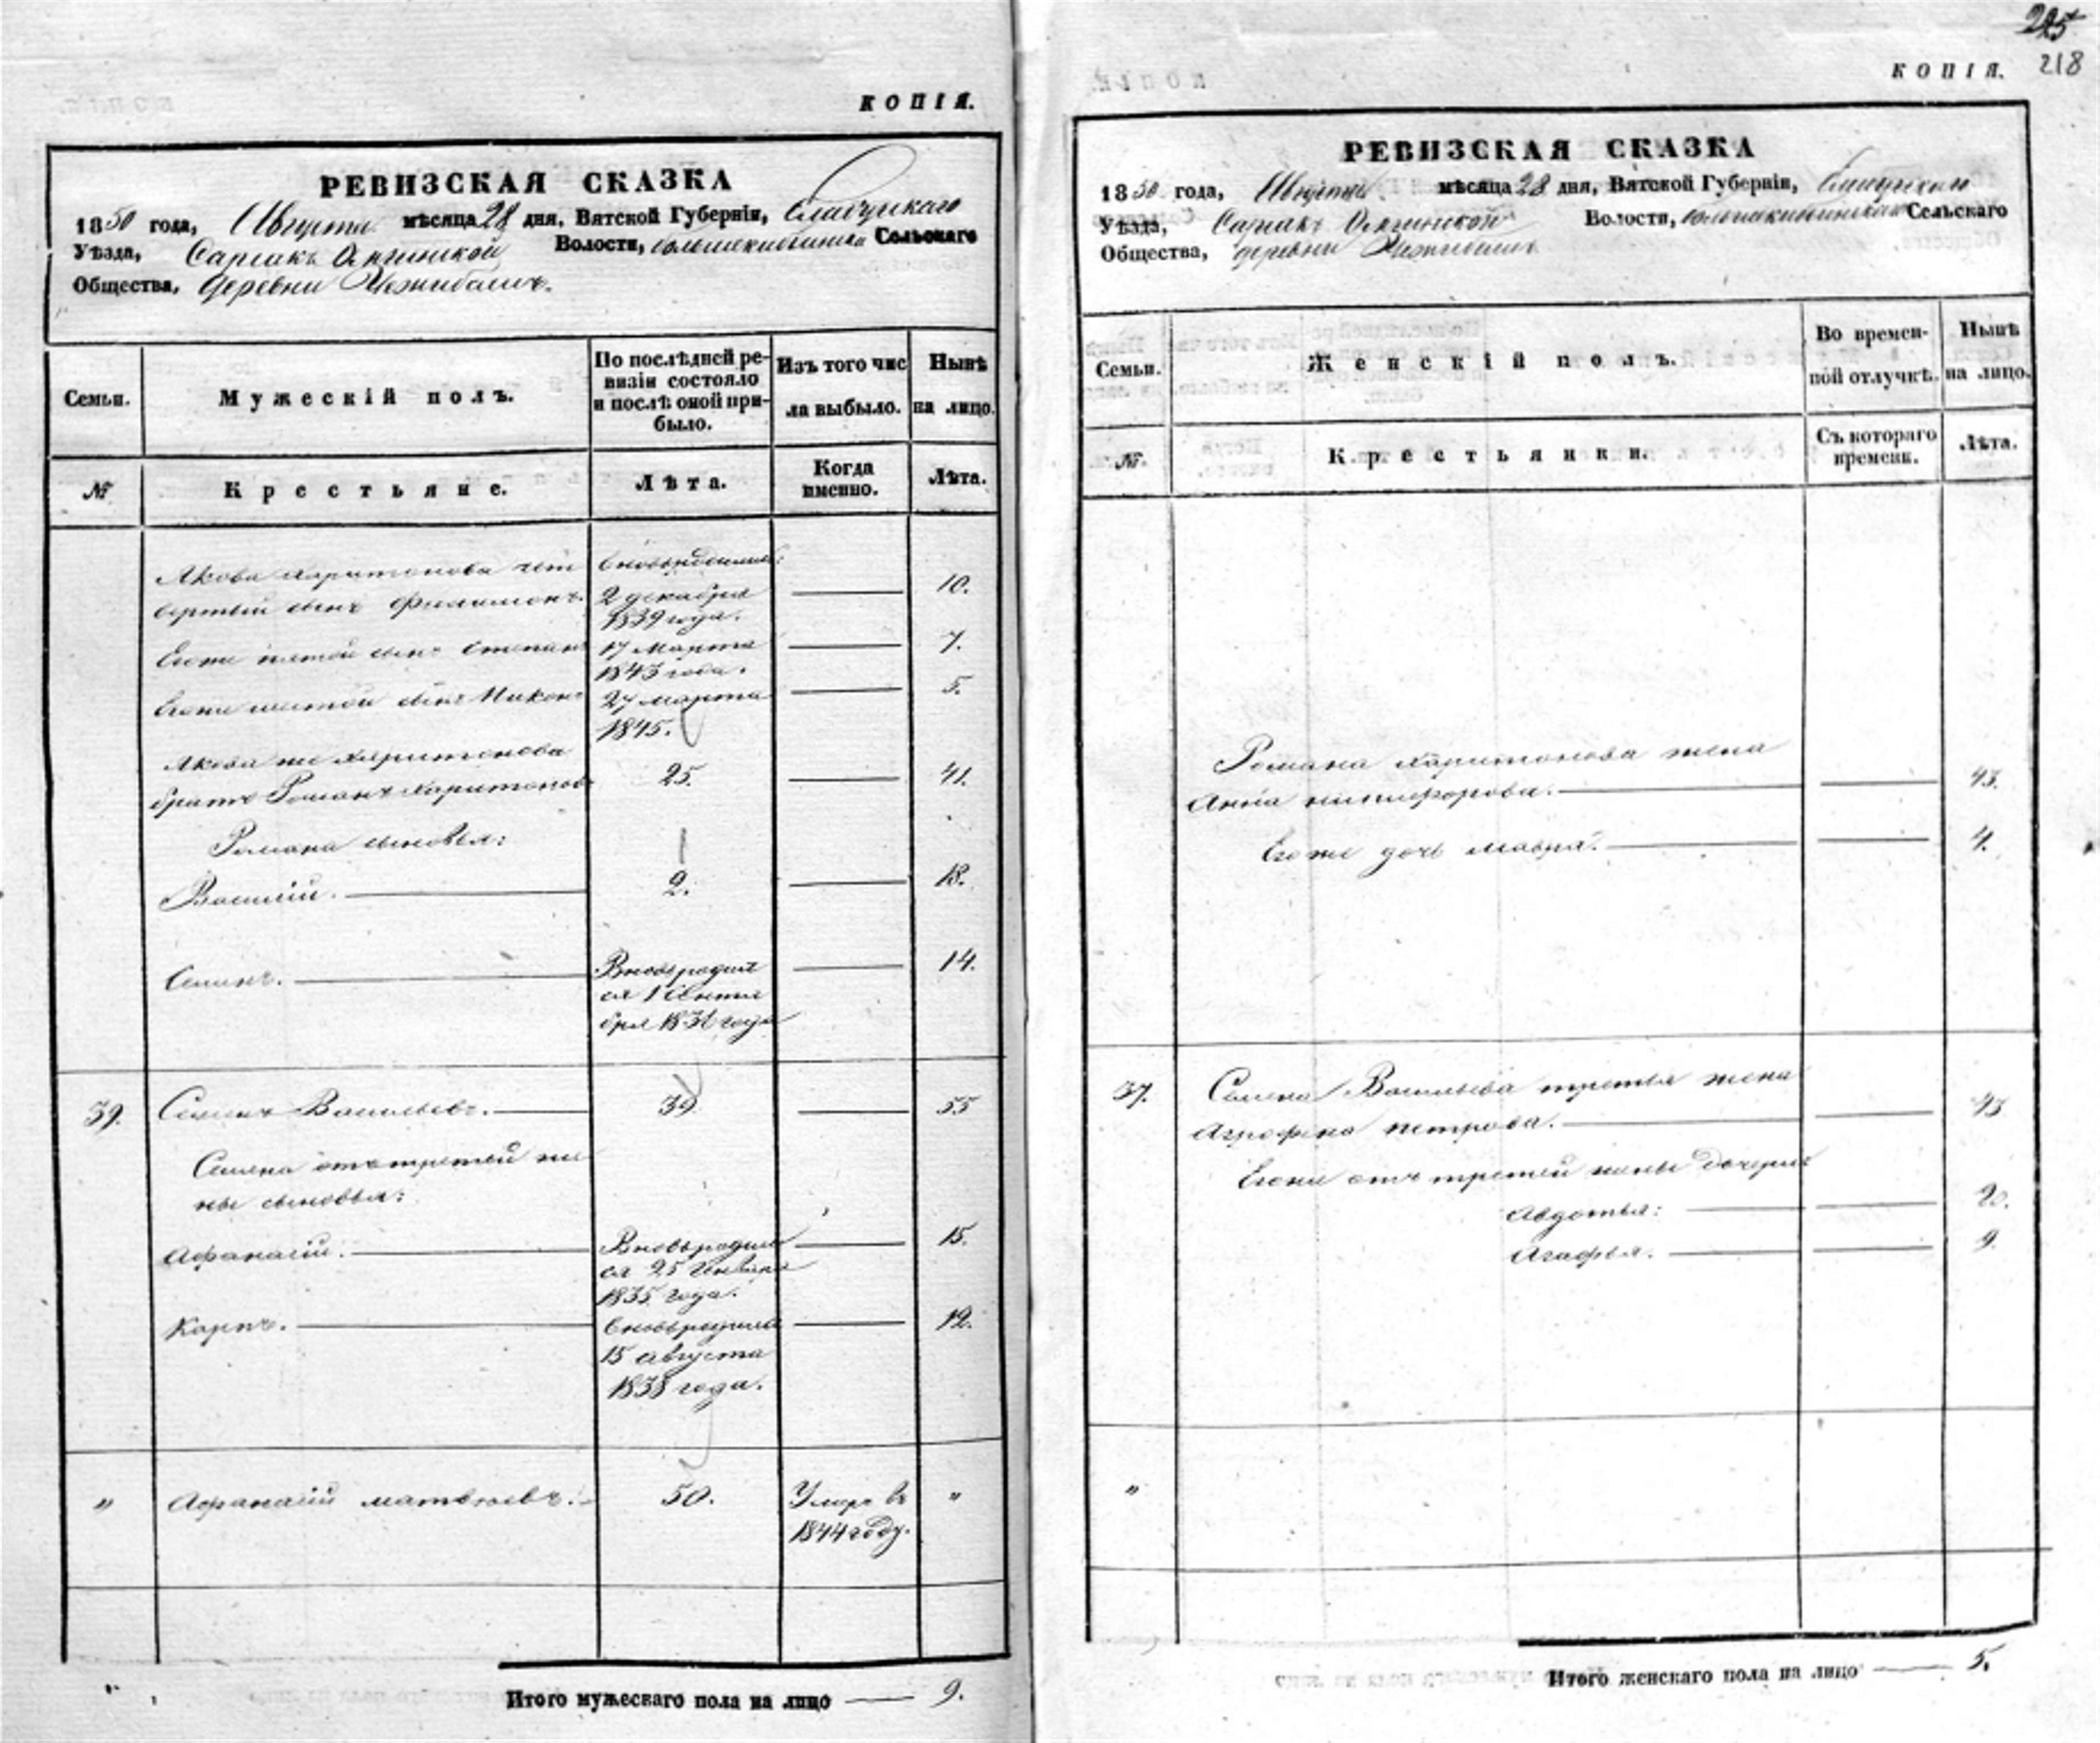 КОПІЯ.
РЕВИЗСКАЯ СКАЗКА
1850 года, Августа мѣсяца 28 дня, Вятской Губерніи, Елабужскаго
Уѣзда, Волости, Сельскаго
Общества, деревни
Семьи.
Мужескій полъ.
По послѣдней ре-
визіи состояло
и послѣ оной при-
было.
Изъ того чис
ла выбыло.
Нынѣ
на лицо.
№
Крестьяне.
Лѣта.
Когда
именно.
Лѣта.
Якова Харитонова чет
вертый сынъ Филимонъ.
2 декабря
1839 года.
10.
Егоже пятой сынъ Степанъ
17 Марта
1843 года.
7.
Егоже шестой сынъ
27 марта
1845.
5.
Якова же Харитонова
братъ Романъ Харитоновъ
25.
41.
Романа сыновья:
Василій.
2.
18.
Семенъ.
Вновьродил
ся 1 Сентя
бря года
14.
39. Семенъ Васильевъ. 39 55
Семена отъ третьей же
ны сыновья:
Афанасій.
Вновьродил
ся 25 Января
1835 года.
15.
Карпъ.
вновьродился
15 августа
1838 года.
12.
" Афанасій Матвѣевъ. 50. Умеръ въ "
1844 году.
Итого мужескаго пола на лицо — 9.
225
218
КОПІЯ.
РЕВИЗСКАЯ СКАЗКА
1850 года, Августа мѣсяца 28 дня, Вятской Губерніи,
Уѣзда, Волости, Сельскаго
Общества, деревни
Семьи.
Женскій полъ.
Во времен-
ной отлучкѣ.
Нынѣ
на лицо.
№
Крестьянки.
Съ котораго
времени.
Лѣта.
Романа Харитонова жена
Анна Никифорова. 43.
Егоже дочь Мавра. 4.
Семена Васильева третья жена
Агрофена Петрова. 43
Егоже отъ третьей жены дочери:
Авдотья: 20.
Агафья. 9.
"
Итого женскаго пола на лицо — 5.